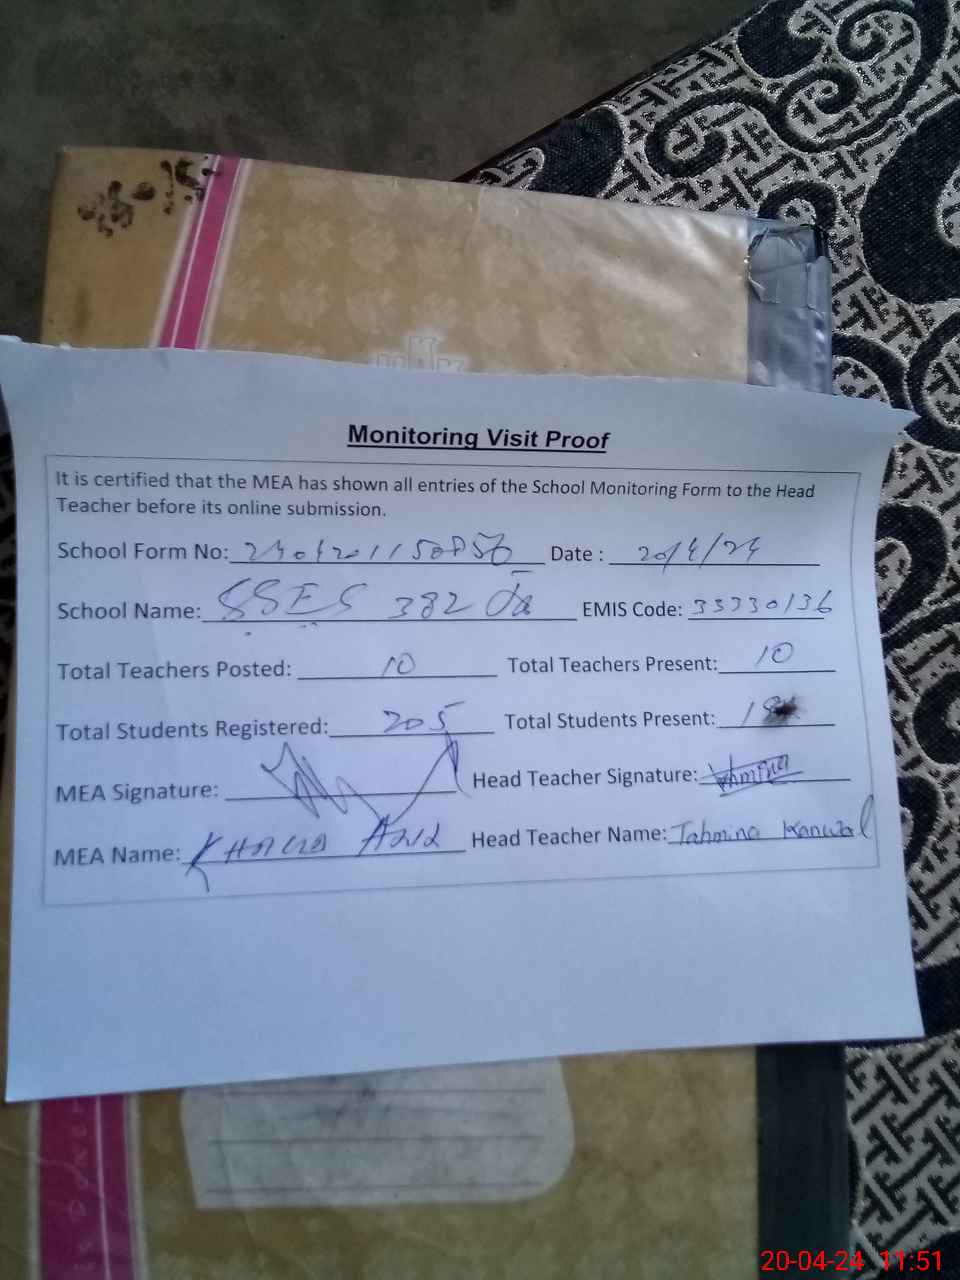 Monitoring Visit Proof
It is certified that the MEA has shown all entries of the School Monitoring Form to the Head
Teacher before its online submission.
School Form No: Date : 20/4/24
School Name: 382 EMIS Code: 33330136
Total Teachers Posted: 10 Total Teachers Present: 10
Total Students Registered: 205 Total Students Present:
MEA Signature: Head Teacher Signature: Tahmina
MEA Name: Head Teacher Name: Tahmina Kanwal
20-04-24 11:51